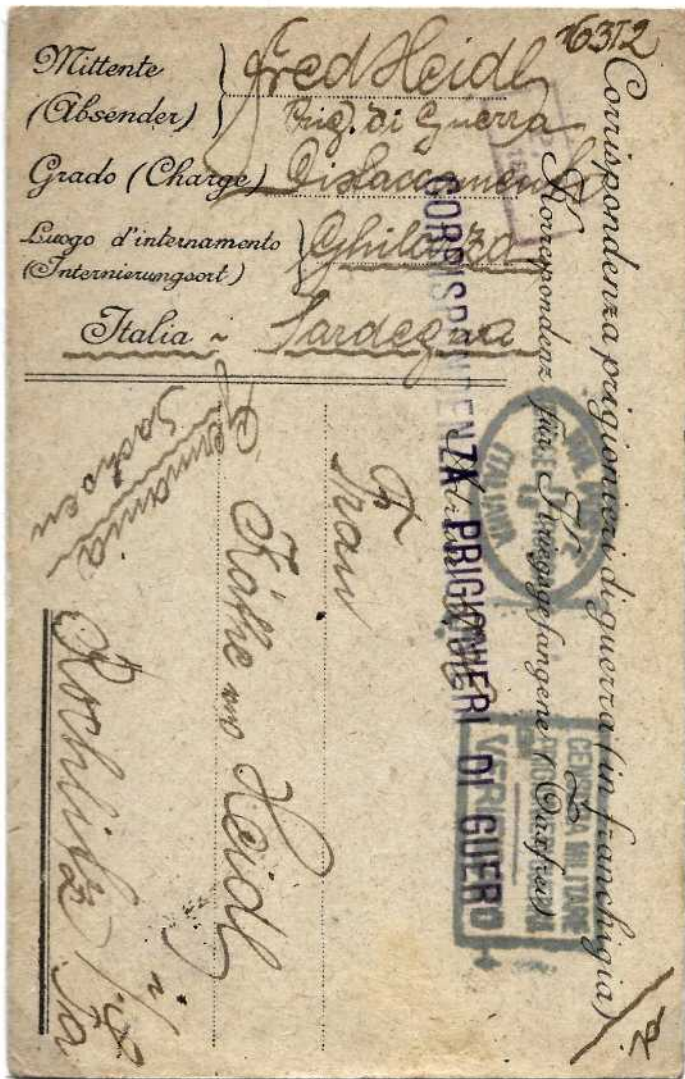 16312
Mittente
(Absender)
Fred Heidl
Prig. di Guerra
Grado (Charge)
Distaccamento
Luogo d'internamento
(Internierungsort)
Ghilarza
Italia ~ Sardegna
Corrispondenza prigionieri di guerra (in franchigia)
Korrespondenz für Kriegsgefangene (Taxfrei)
CORRISPONDENZA PRIGIONIERI DI GUERRA
ITALIANA
CENSURA MILITARE
VERIFICATO
Frau
Käthe Heidl
Rochlitz i/Sa
Germania
Sachsen